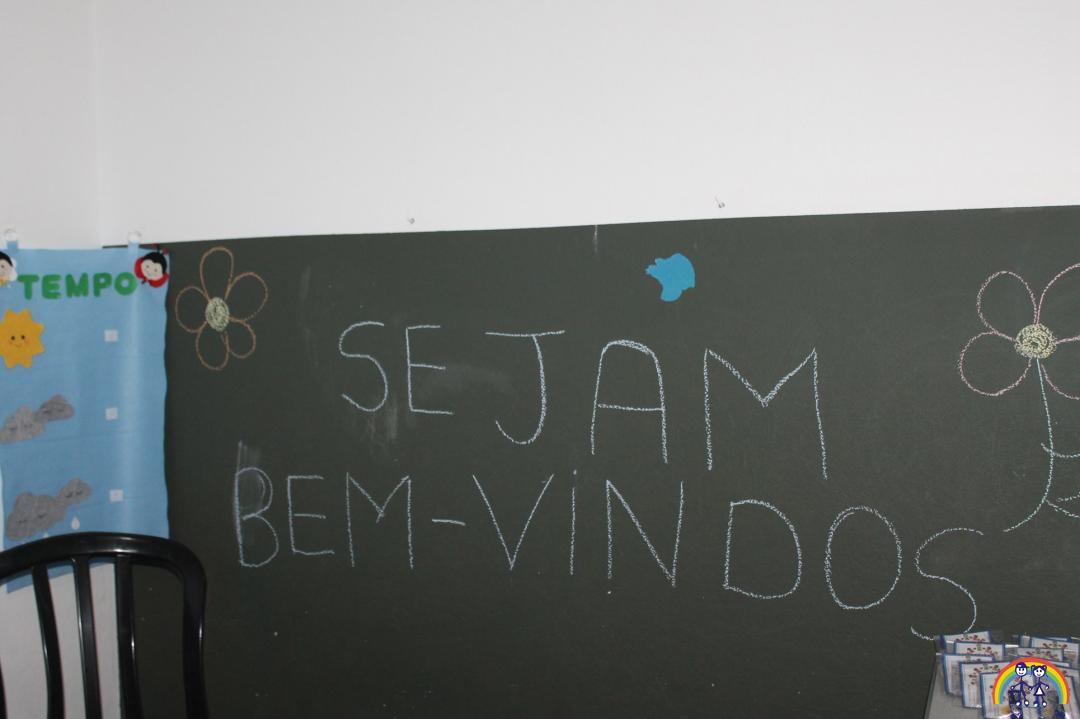 TEMPO
SEJAM
BEM-VINDOS